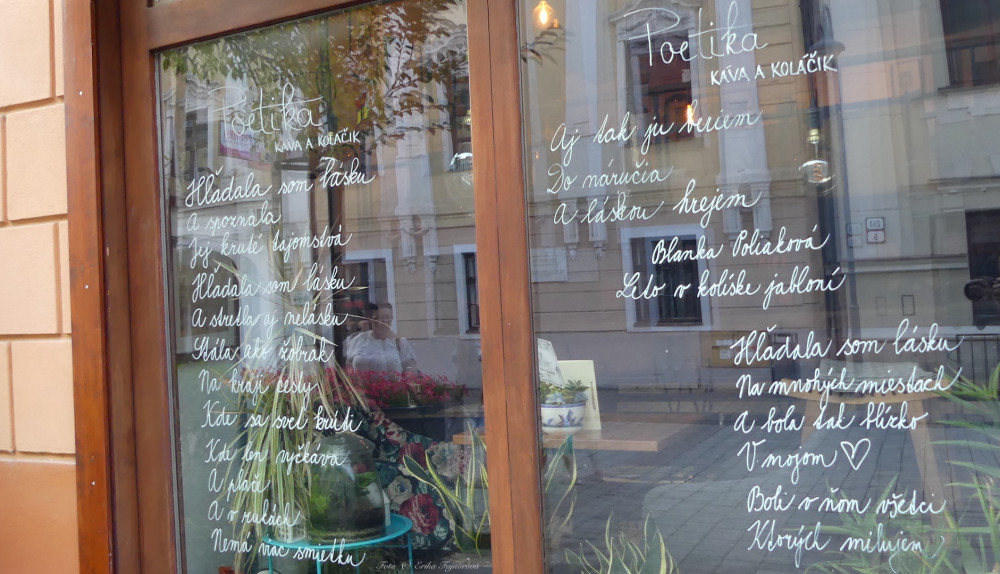 Poetika
KÁVA A KOLÁČIK
Hľadala som lásku
A spoznala
Jej kruté tajomstvá
Hľadala som lásku
A stretla aj nelásku
Stála ako žobrák
Na kraji cesty
Kde sa svet krúti
Kde len vyčkáva
A pláče
A v rukách
Nemá viac smietku
Poetika
KÁVA A KOLÁČIK
Aj tak ju beriem
Do náručia
A láskou hrejem
Blanka Poliaková
Leto v kolíske jabloní
Hľadala som lásku
Na mnohých miestach
A bola tak blízko
V mojom ♡
Boli v ňom všetci
Ktorých milujem
Foto © Erika Fajnorová